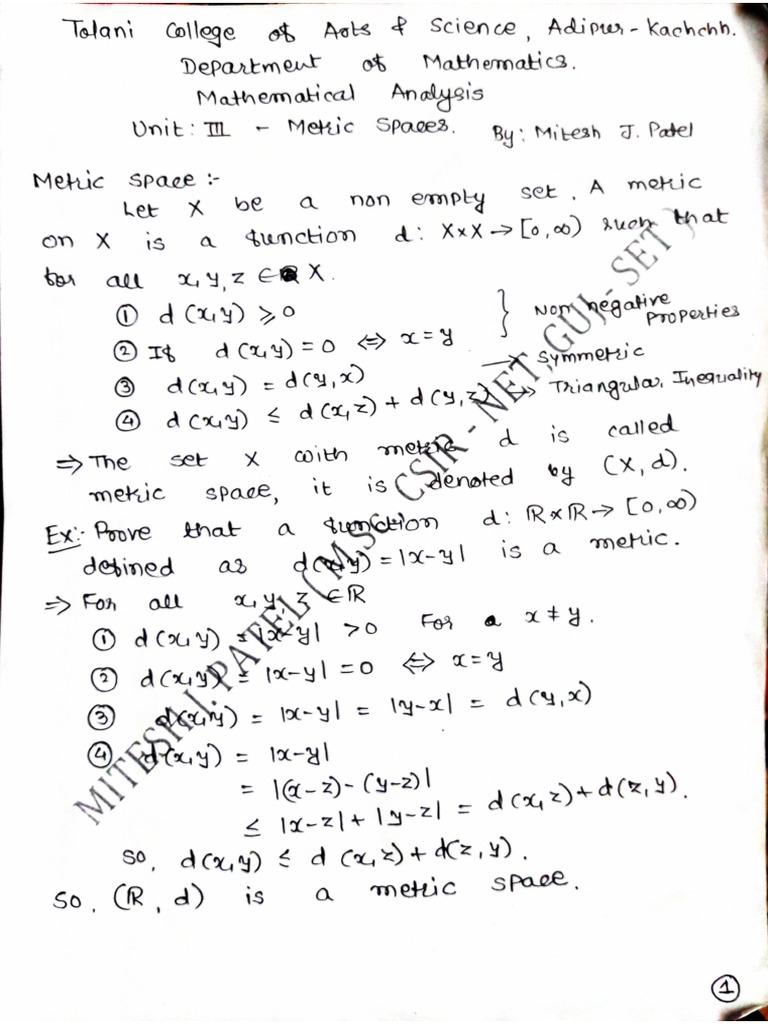 Tolani College of Arts & Science, Adipur-Kachchh.
Department of Mathematics.
Mathematical Analysis
Unit: III - Metric Spaces. By: Mitesh J. Patel
Metric space :-
Let X be a non empty set. A metric
on X is a function d: X×X → [0,∞) such that
for all x,y,z ∈ X.
① d(x,y) ≥ 0 } Non negative Properties
② If d(x,y) = 0 ⇔ x=y
③ d(x,y) = d(y,x) → Symmetric
④ d(x,y) ≤ d(x,z) + d(y,z) → Triangular Inequality
⇒ The set X with metric d is called
metric space, it is denoted by (X,d).
Ex:- Prove that a function d: ℝ×ℝ → [0,∞)
defined as d(x,y) = |x-y| is a metric.
⇒ For all x,y,z ∈ ℝ
① d(x,y) = |x-y| >0 For a x ≠ y.
② d(x,y) = |x-y| = 0 ⇔ x=y
③ d(x,y) = |x-y| = |y-x| = d(y,x)
④ d(x,y) = |x-y|
= |(x-z)-(y-z)|
≤ |x-z|+|y-z| = d(x,z)+d(z,y).
So, d(x,y) ≤ d(x,z)+d(z,y).
So, (ℝ,d) is a metric space.
MITESH J. PATEL ( M.Sc. CSIR - NET, GUJ - SET )
1